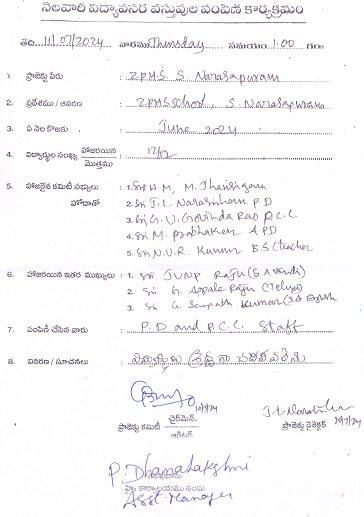 నెలవారి విద్యావసర వస్తువుల పంపిణి కార్యక్రమం
తేది 11/07/2024 వారము Thursday సమయం 1:00 గం
1. ప్రాజెక్టు పేరు : ZPHS S. Narasapuram
2. ప్రదేశము / ఆవరణ : ZPHSchool, S. Narasapuram
3. ఏ నెల కొఱకు : June 2024
4. విద్యార్థుల సంఖ్య హాజరయిన : 12/12
మొత్తము
5. హాజరైన కమిటీ సభ్యులు : 1. Sri H M, M.
హోదాతో 2. Sri J. L. Narasimham P D
3. Sri G. V. Govinda Rao P.C.C
4. Sri M. Prabhakar A P D
5. Sri N.V.R. Kumar B.S (teacher
6. హాజరయిన ఇతర ముఖ్యులు : 1. Sri JUNP Raju (S A Hindi)
2. Sri G. Appala Raju (Telugu)
3. Sri G. Sampath Kumar (SA English
7. పంపిణి చేసిన వారు : P. D and P. C. C. Staff
8. వివరణ / సూచనలు :
10/7/24
చైర్‌మెన్
ప్రాజెక్టు కమిటీ
ఆడిటర్
ప్రాజెక్టు డైరెక్టర్
P. Dhanalakshmi
హై కార్యాలయము నందు
Asst Manager